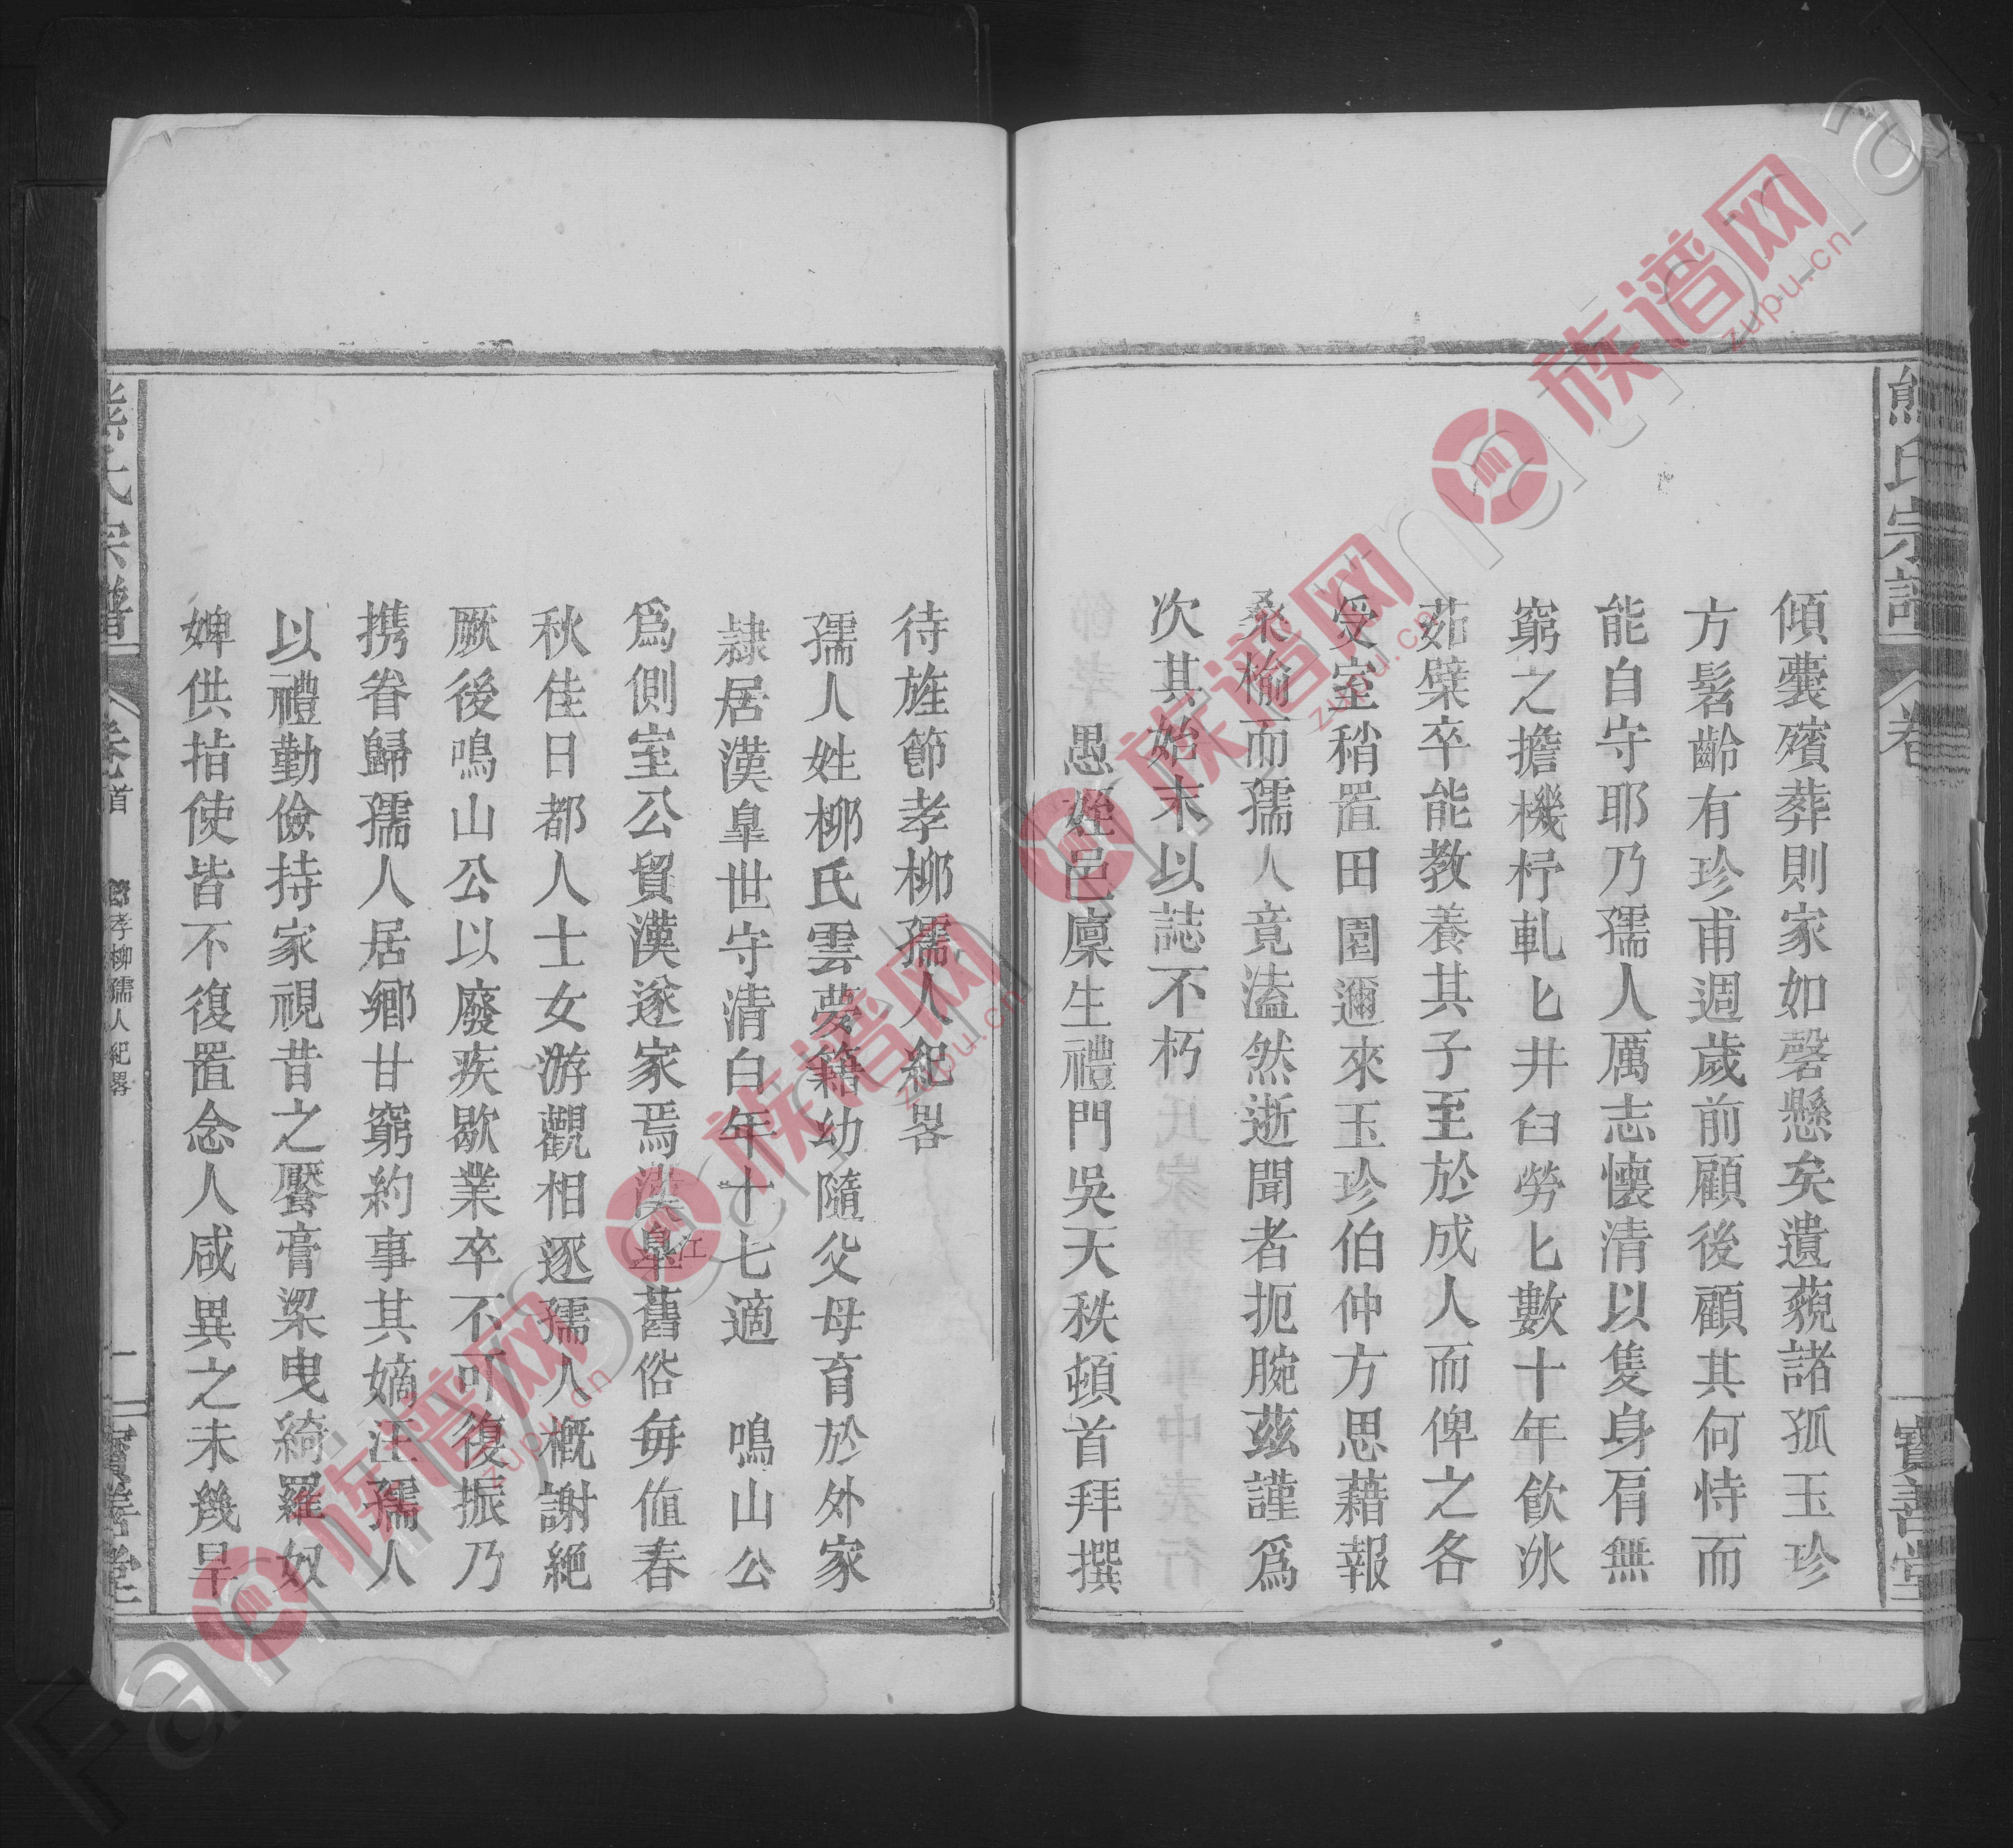 熊氏宗譜
卷
寶善堂
傾囊殯葬則家如磬懸矣遺藐諸孤玉珍
方髫齡有珍甫週歲前顧後顧其何恃而
能自守耶乃孺人厲志懷清以隻身肩無
窮之擔機杼軋匕井臼勞匕數十年飲冰
茹蘗卒能教養其子至於成人而俾之各
受室稍置田園邇來玉珍伯仲方思藉報
桑榆而孺人竟溘然逝聞者扼腕茲謹為
次其始末以誌不朽
愚姪邑廩生禮門吳天秩頓首拜撰
待旌節孝柳孺人紀畧
孺人姓柳氏雲夢籍幼隨父母育於外家
隷居漢臯世守清白年十七適 鳴山公
為側室公貿漢遂家焉漢臯舊俗每值春
江
秋佳日都人士女游觀相逐孺人概謝絕
厥後鳴山公以廢疾歇業卒不可復振乃
携眷歸孺人居鄉甘窮約事其嫡汪孺人
以禮勤儉持家視昔之饜膏粱曳綺羅奴
婢供指使皆不復置念人咸異之未幾早
熊氏宗譜
卷首
節孝柳孺人紀畧
一
寶善堂
族谱网
zupu.cn
族谱网
zupu.cn
族谱网
zupu.cn
族谱网
zupu.cn